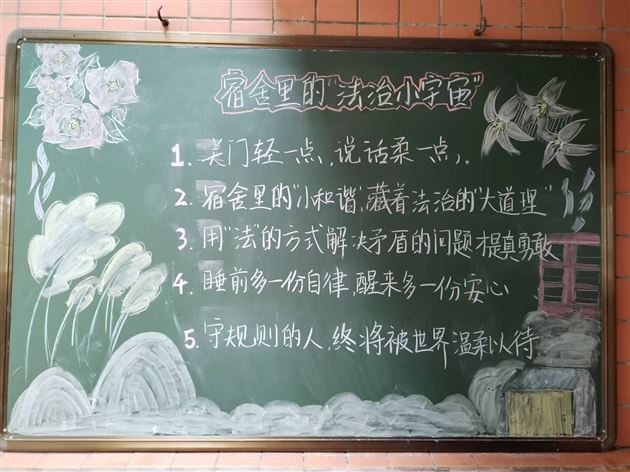 宿舍里的"法治小宇宙"
1. 关门轻一点，说话柔一点。
2. 宿舍里的"小和谐，藏着法治的"大道理"
3. 用"法"的方式解决矛盾的问题才是真勇敢
4. 睡前多一份自律，醒来多一份安心
5. 守规则的人，终将被世界温柔以待